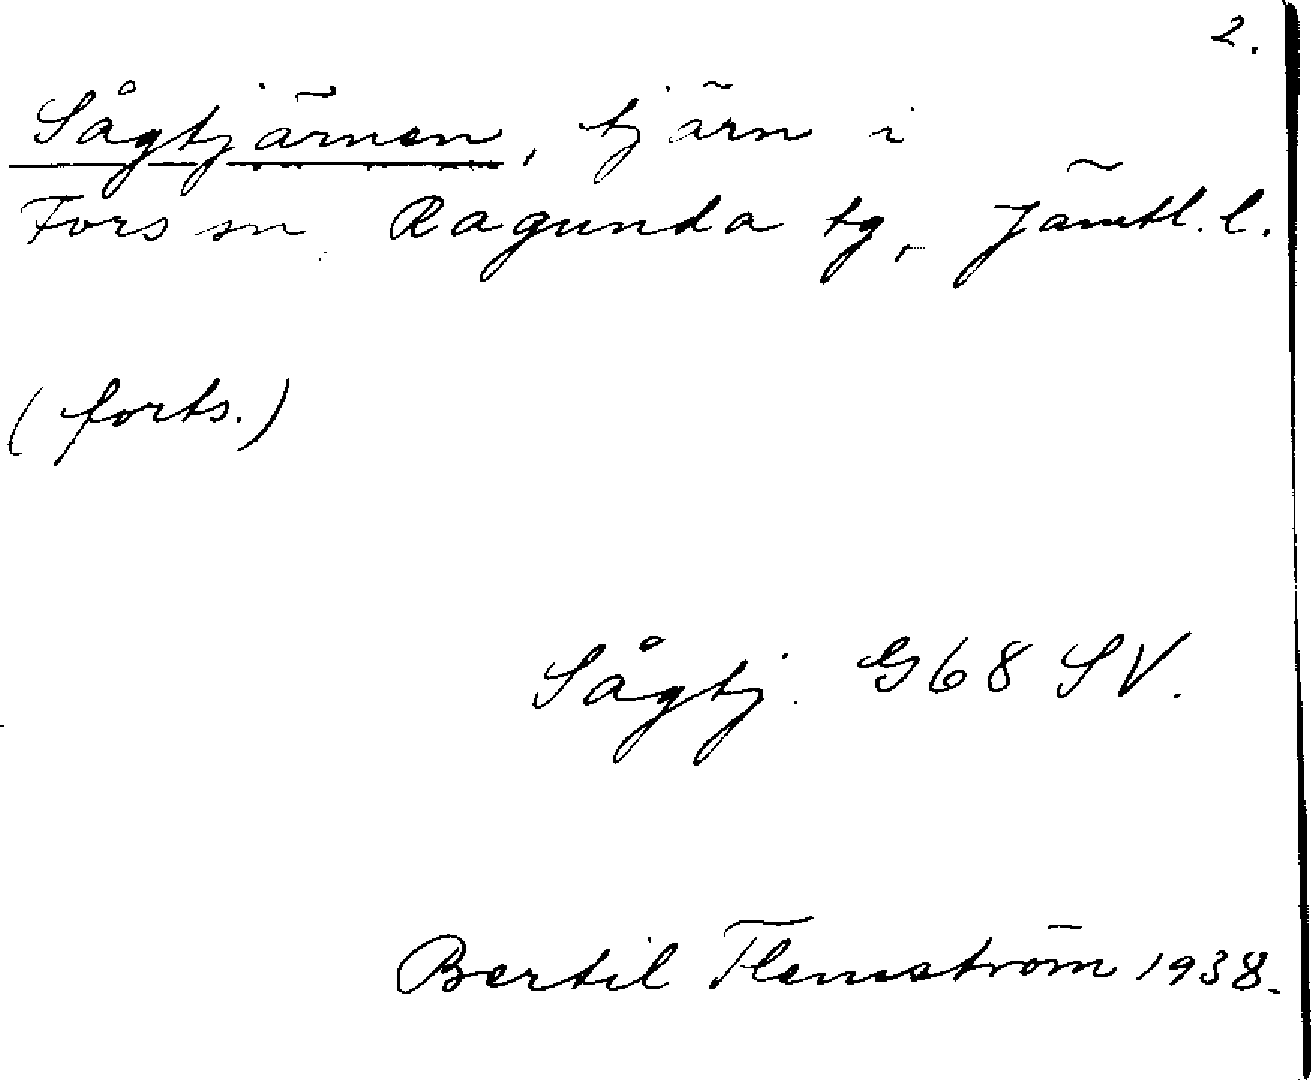 2.
Sågtjärnen, tjärn i
Fors sn Ragunda tg, Jämtl. l.
(forts.)
Sågtj. G68 SV.
Bertil Flemström 1938.